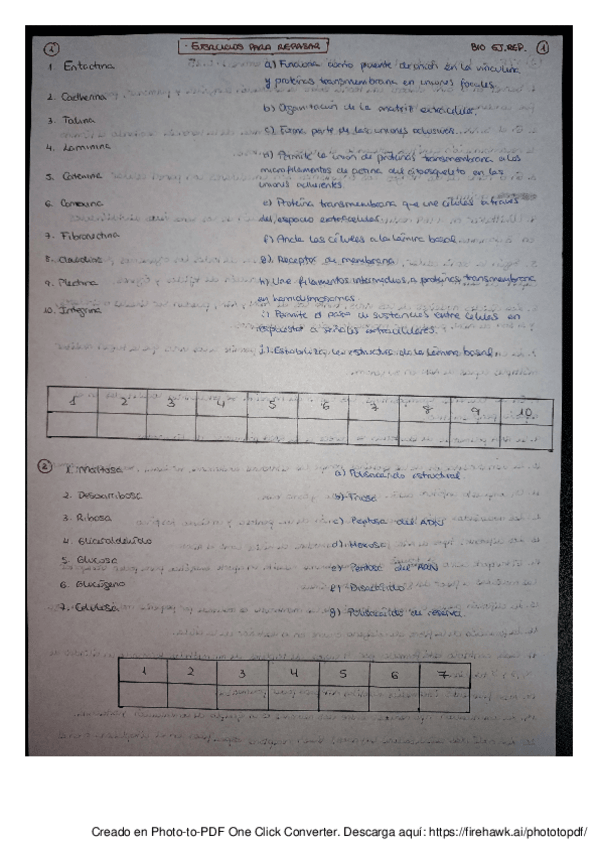 1
EJERCICIOS PARA REPASAR
BIO EJ.REP. 1
1. Entactina
a) Funciona como puente de unión en la vinculina
y proteínas transmembrana en uniones focales.
2. Cadherina
b) Organización de la matriz extracelular.
3. Talina
c) Forma parte de las uniones oclusivas.
4. Laminina
d) Permite la unión de proteínas transmembrana a los
microfilamentos de actina del citoesqueleto en las
uniones adherentes.
5.
6.
e) Proteína transmembrana que une células a través
del espacio extracelular.
7. Fibronectina
f) Ancla las células a la lámina basal.
8. Claudina
g) Receptor de membrana.
9. Plectina
h) Une filamentos intermedios a proteínas transmembrana
en hemidesmosomas.
10. Integrina
i) Permite el paso de sustancias entre células en
respuesta a señales extracelulares.
j) Estabiliza la estructura de la lámina basal.
1 2 3 4 5 6 7 8 9 10
2
1. Maltosa
a) Polisacárido estructural.
2. Desoxirribosa
b) Triosa
3. Ribosa
c) Pentosa del ADN
4. Gliceraldehído
d) Hexosa
5. Glucosa
e) Pentosa del ARN
6. Glucógeno
f) Disacárido
7. Celulosa
g) Polisacárido de reserva.
1 2 3 4 5 6 7
Creado en Photo-to-PDF One Click Converter. Descarga aquí: https://firehawk.ai/phototopdf/